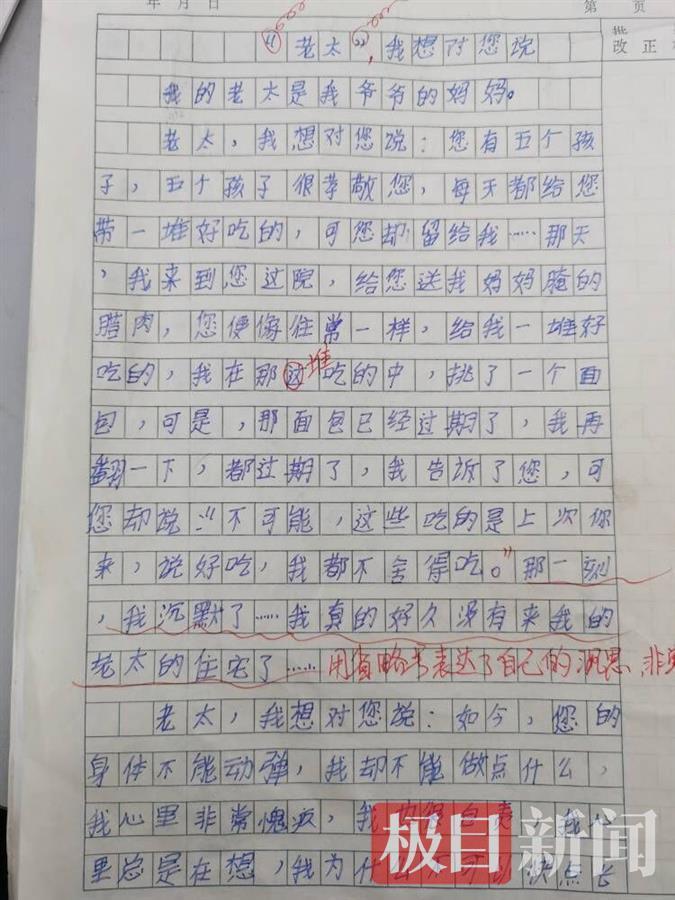 年 月 日 第 页
批
改 正
“老太”，我想对您说
我的老太是我爷爷的妈妈。
老太，我想对您说：您有五个孩
子，五个孩子很孝敬您，每天都给您
带一堆好吃的，可您却留给我……那天
，我来到您这院，给您送我妈妈腌的
腊肉，您便像往常一样，给我一堆好
堆
吃的，我在那这吃的中，挑了一个面
包，可是，那面包已经过期了，我再
翻一下，都过期了，我告诉了您，可
您却说：“不可能，这些吃的是上次你
来，说好吃，我都不舍得吃。”那一刻
，我沉默了……我真的好久没有来我的
老太的住宅了……用省略号表达了自己的沉思，非
老太，我想对您说：如今，您的
身体不能动弹，我却不能做点什么，
我心里非常愧疚，我也很自责，我心
里总是在想，我为什么不可以快点长
极目新闻